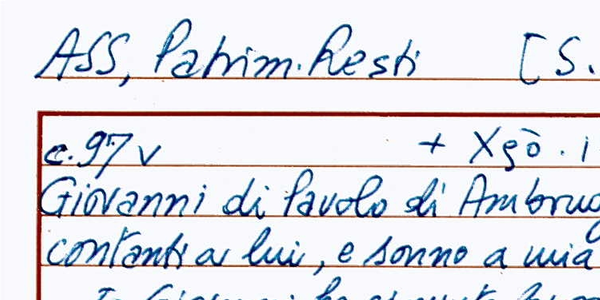 ASS, Patrim. Resti [S.
c. 97 v + Xgō. i
Giovanni di Pavolo di Ambrug
contanti a lui, e sonno a mia